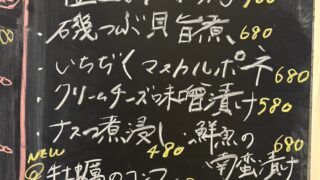 ・磯つぶ貝旨煮 680
・いちぢくマスカルポネ 680
・クリームチーズ味噌漬け 580
・ナスの煮浸し 480 ・鮮魚の南蛮漬け 680
NEW
牡蠣の